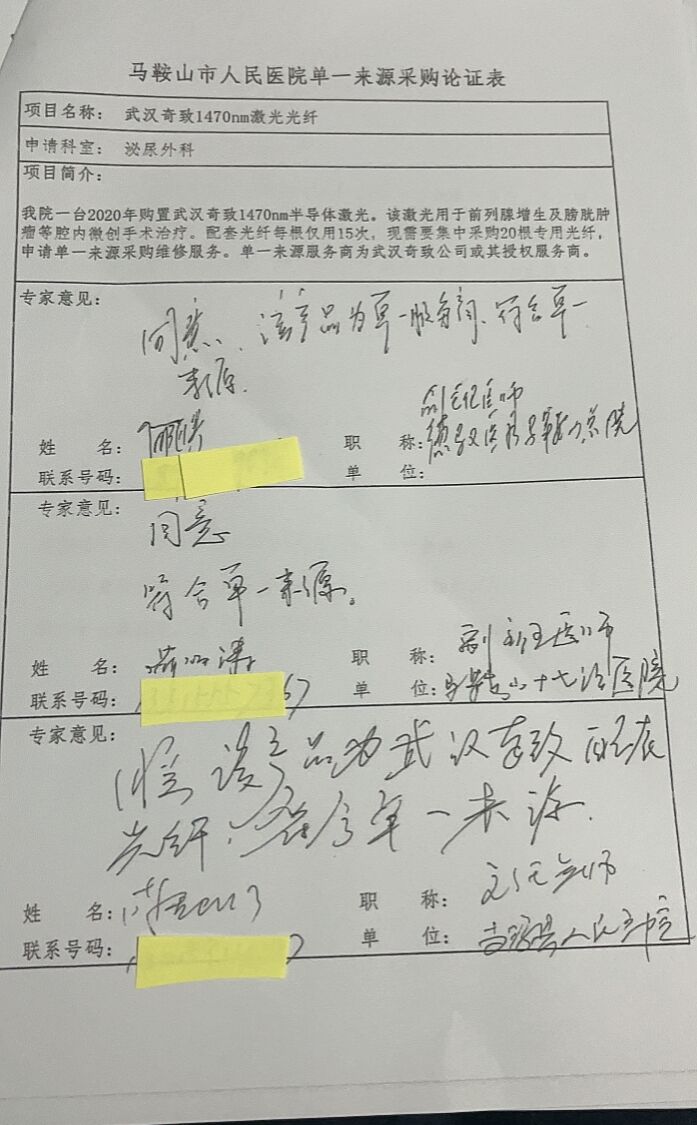 马鞍山市人民医院单一来源采购论证表
项目名称： 武汉奇致1470nm激光光纤
申请科室： 泌尿外科
项目简介：
我院一台2020年购置武汉奇致1470nm半导体激光。该激光用于前列腺增生及膀胱肿
瘤等腔内微创手术治疗。配套光纤每根仅用15次，现需要集中采购20根专用光纤，
申请单一来源采购维修服务。单一来源服务商为武汉奇致公司或其授权服务商。
专家意见：
同意、该产品为单一服务商、符合单一
来源.
姓 名： 职 称：副主任医师
联系号码： 单 位：
专家意见：
同意
符合单一来源。
姓 名： 职 称：副主任医师
联系号码： 67 单 位：马鞍山十七冶医院
专家意见：
同意 该产品为武汉奇致配套
光纤，符合单一来源.
姓 名： 职 称：主任医师
联系号码： 单 位：当涂县人民医院